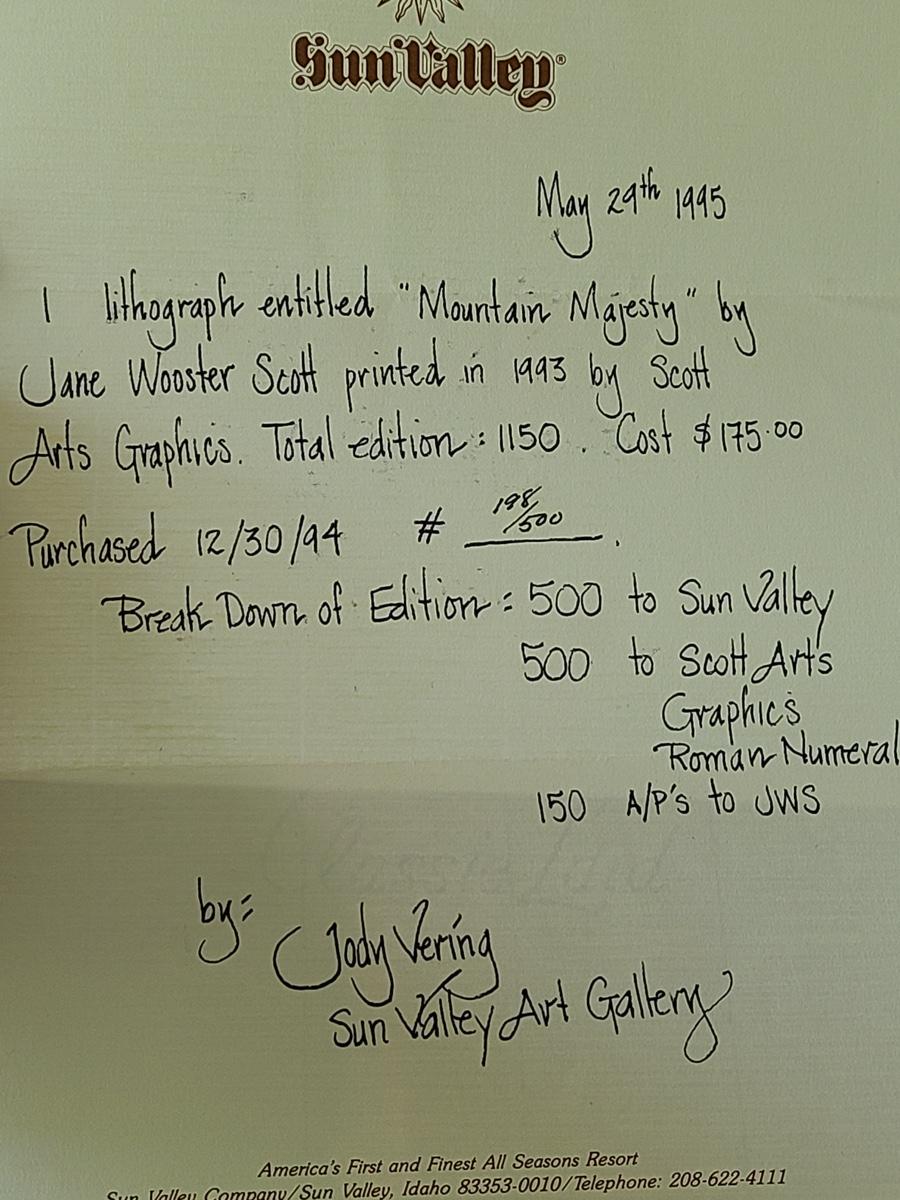 Sun Valley®
May 29th 1995
1 lithograph entitled "Mountain Majesty" by
Jane Wooster Scott printed in 1993 by Scott
Arts Graphics. Total edition: 1150. Cost $175.00
Purchased 12/30/94 # 198/500.
Break Down of Edition: 500 to Sun Valley
500 to Scott Arts
Graphics
Roman Numeral
150 A/P's to JWS
by:
Jody Vering
Sun Valley Art Gallery
America's First and Finest All Seasons Resort
Sun Valley Company/Sun Valley, Idaho 83353-0010/Telephone: 208-622-4111